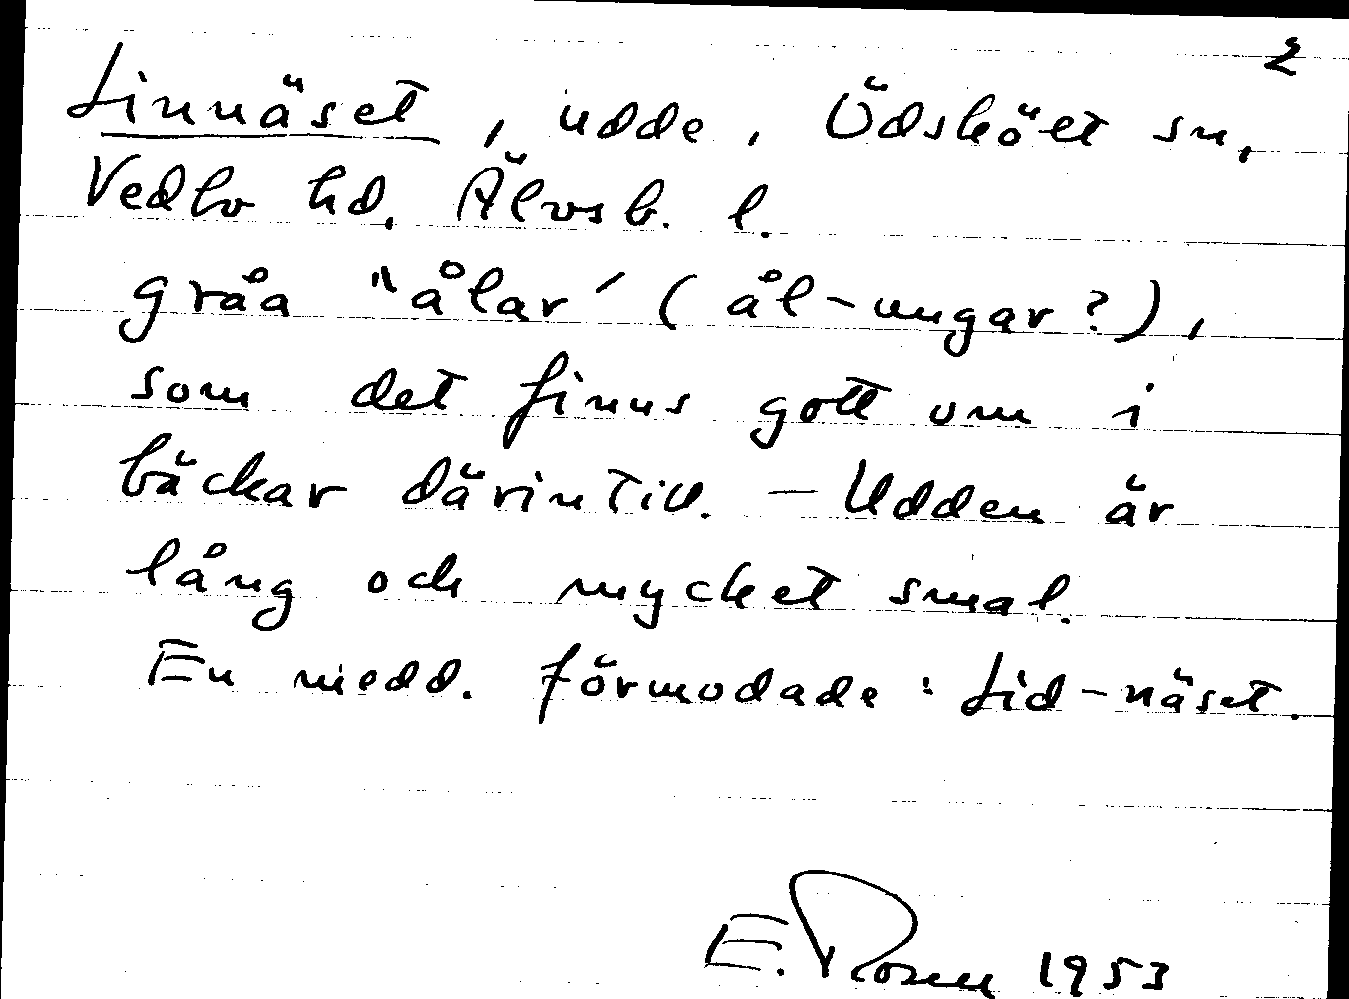 2
Linnäset, udde, Ödskölt sn,
Vedbo hd. Älvsb. l.
gråa "ålar" (ål-ungar?),
som det finns gott om i
bäckar därintill. — Udden är
lång och mycket smal.
En medd. förmodade: Lid-näset.
E. Rosen 1953